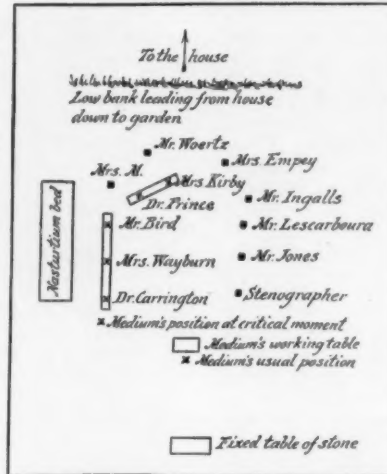 To the house
Low bank leading from house
down to garden
Mr. Woertz
Mrs. Empey
Mrs. M.
Mrs Kirby
Dr. Prince
Mr. Ingalls
Nasturtium bed
Mr. Bird
Mr. Lescarboura
Mrs. Wayburn
Mr. Jones
Dr. Carrington
Stenographer
Medium's position at critical moment
Medium's working table
Medium's usual position
Fixed table of stone